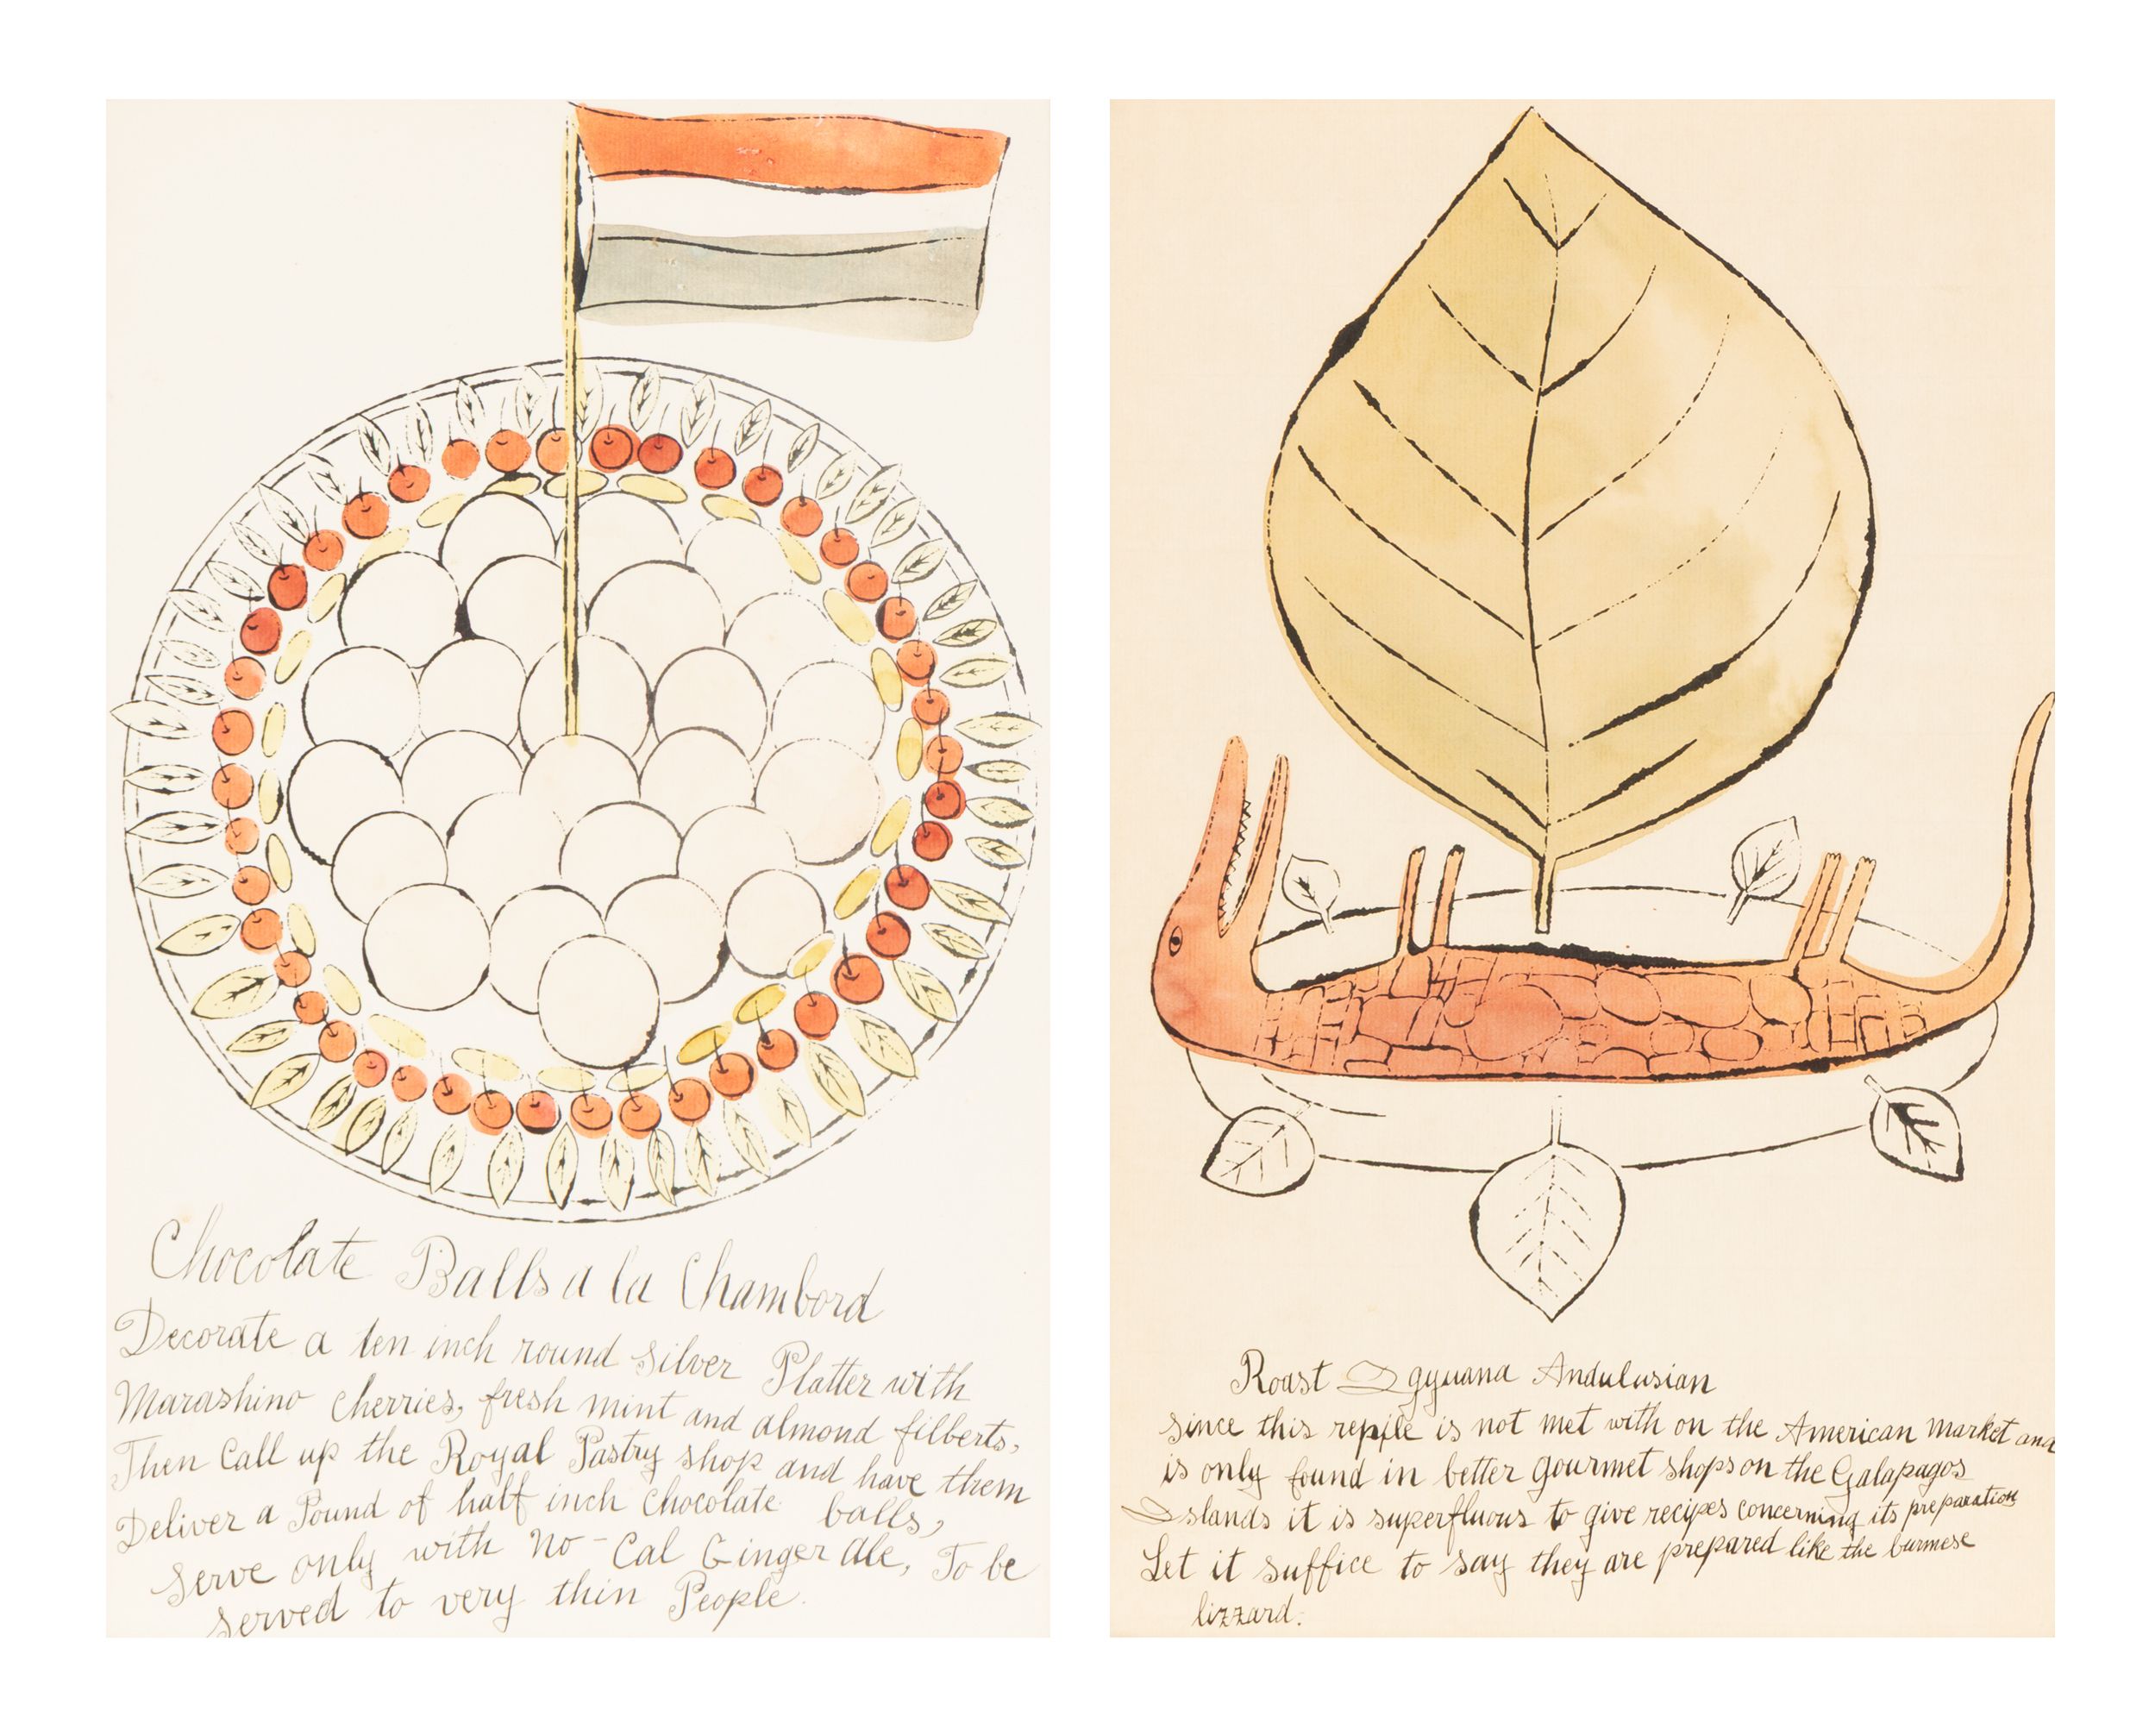 Chocolate Balls a la Chambord
Decorate a ten inch round Silver Platter with
Marashino Cherries, fresh mint and almond filberts,
Then Call up the Royal Pastry shop and have them
Deliver a Pound of half inch chocolate balls,
Serve only with No-Cal Ginger Ale, To be
served to very thin People.
Roast Igyuana Andulusian
since this repile is not met with on the American market and
is only found in better gourmet shops on the Galapagos
Islands it is superfluous to give recipes concerning its preparation
Let it suffice to say they are prepared like the burmese
lizzard.